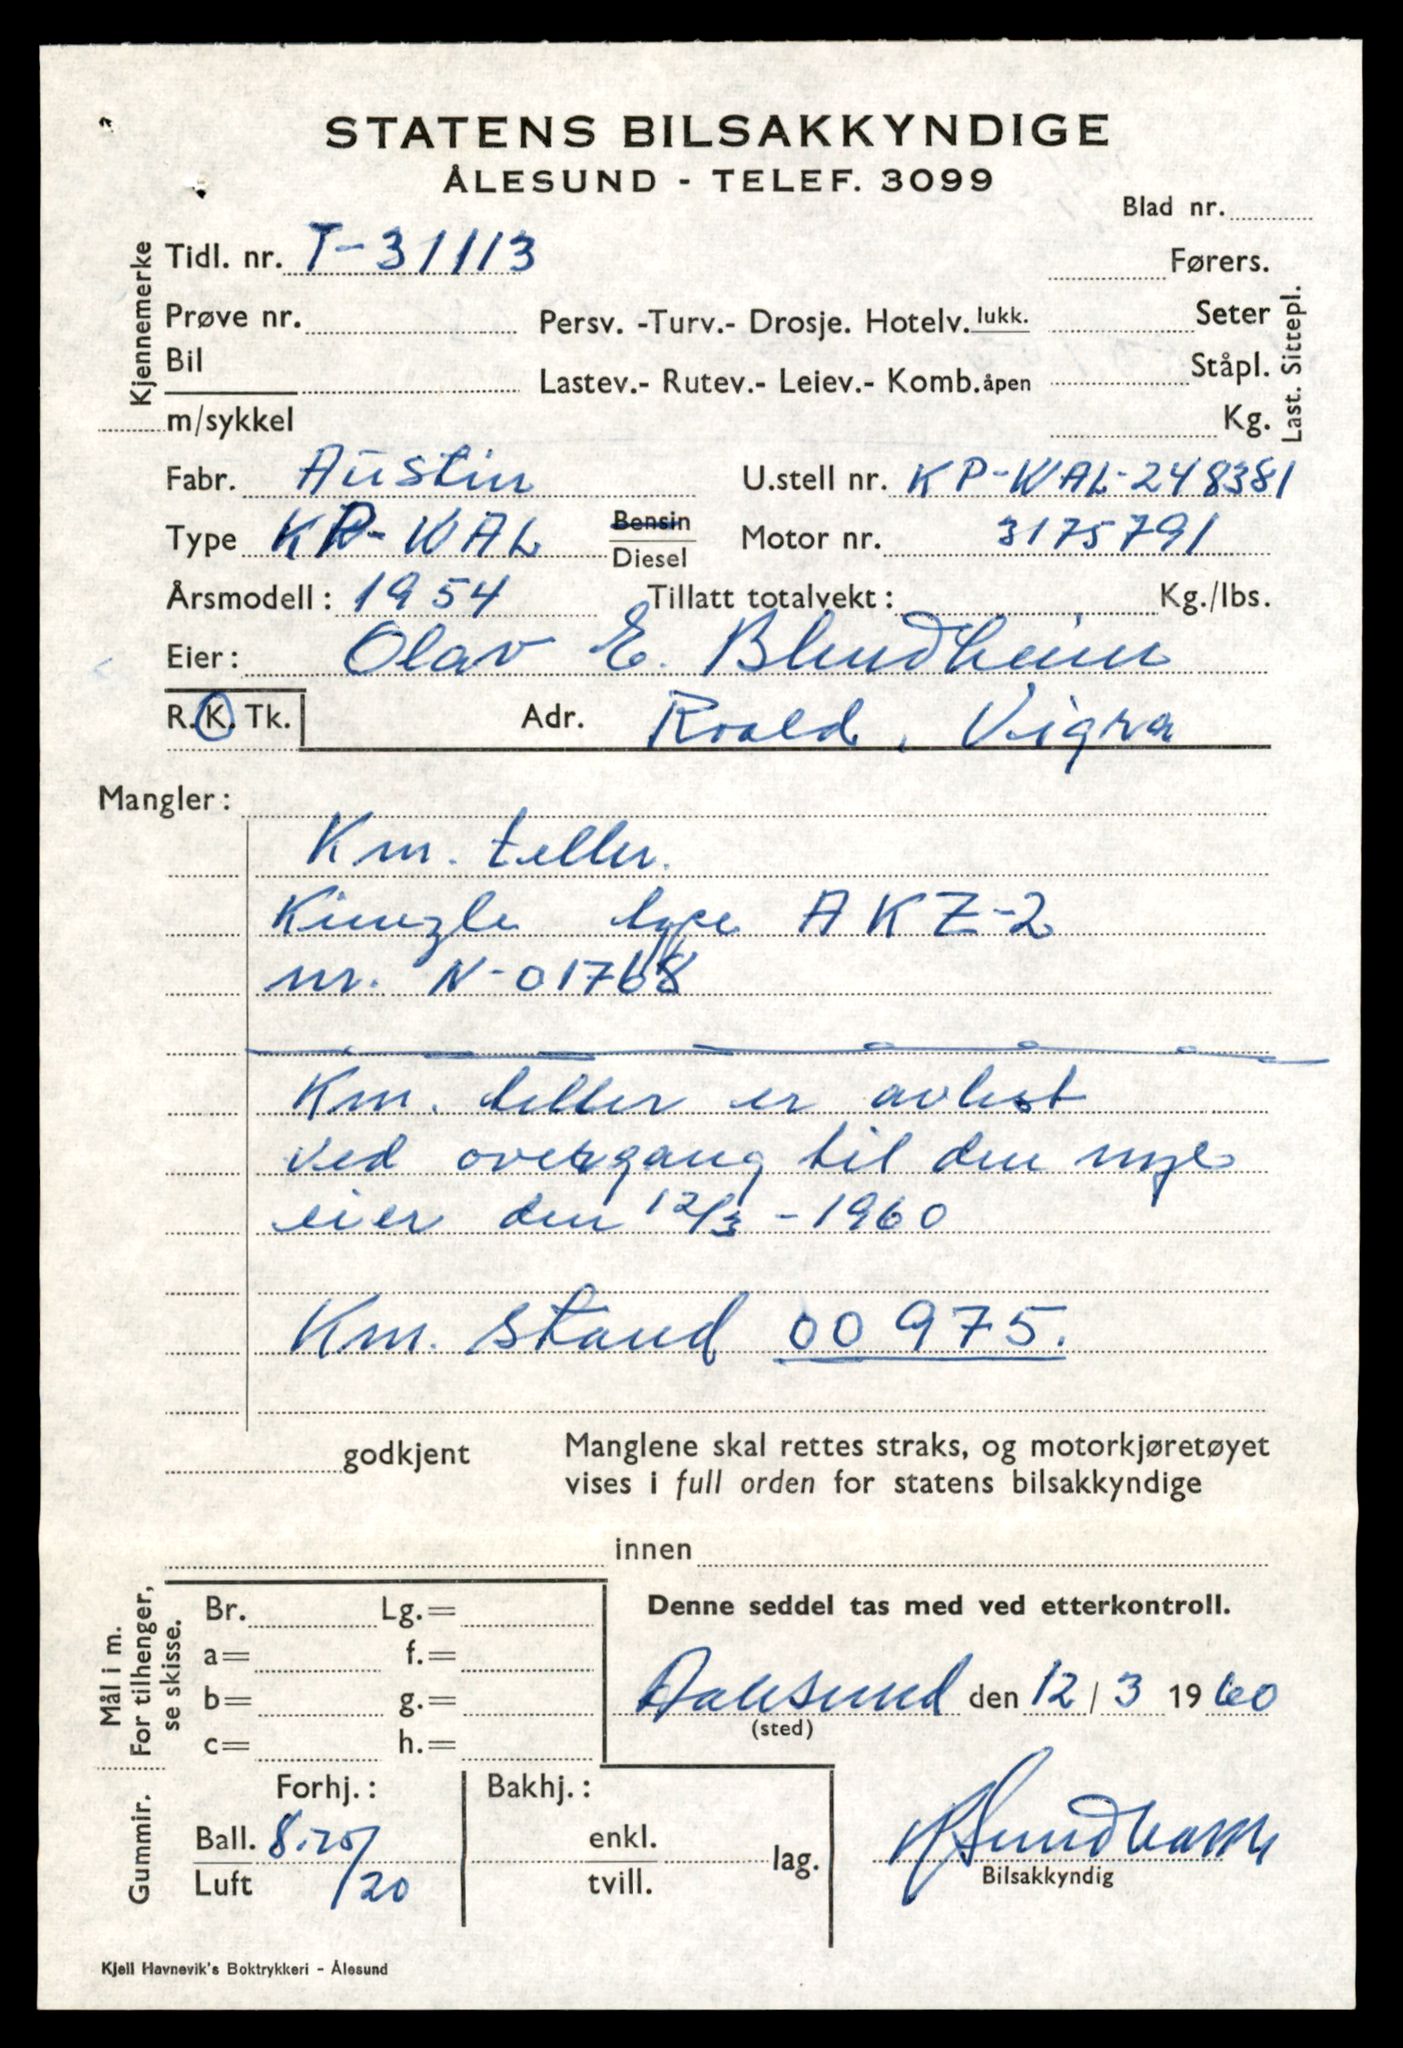 STATENS BILSAKKYNDIGE
ÅLESUND - TELEF. 3099
Blad nr.
Kjennemerke
Tidl. nr. T-31113
Førers.
Prøve nr.
Persv. -Turv.- Drosje. Hotelv. lukk.
Seter
Bil
Lastev.- Rutev.- Leiev.- Komb. åpen
Ståpl.
m/sykkel
Kg.
Last. Sittepl.
Fabr. Austin
U.stell nr. KP-WAL-248381
Type KP-WAL
Bensin
Diesel
Motor nr. 3175791
Årsmodell: 1954
Tillatt totalvekt: Kg./lbs.
Eier: Olav E. Blindheim
R. K. Tk.
Adr. Roald, Vigra
Mangler:
Km. teller.
Kinzle type AKZ-2
nr. N-01768
Km. teller er avlest
ved overgang til den nye
eier den 12/3-1960
Km. stand 00975.
godkjent
Manglene skal rettes straks, og motorkjøretøyet
vises i full orden for statens bilsakkyndige
innen
Mål i m.
For tilhenger,
se skisse.
Br. Lg.=
a= f.=
b= g.=
c= h.=
Denne seddel tas med ved etterkontroll.
Aalesund den 12/3 1960
(sted)
Gummir.
Forhj.:
Bakhj.:
Ball. 8.25/
Luft /20
enkl.
tvill.
lag.
Bilsakkyndig
Kjell Havnevik's Boktrykkeri - Ålesund